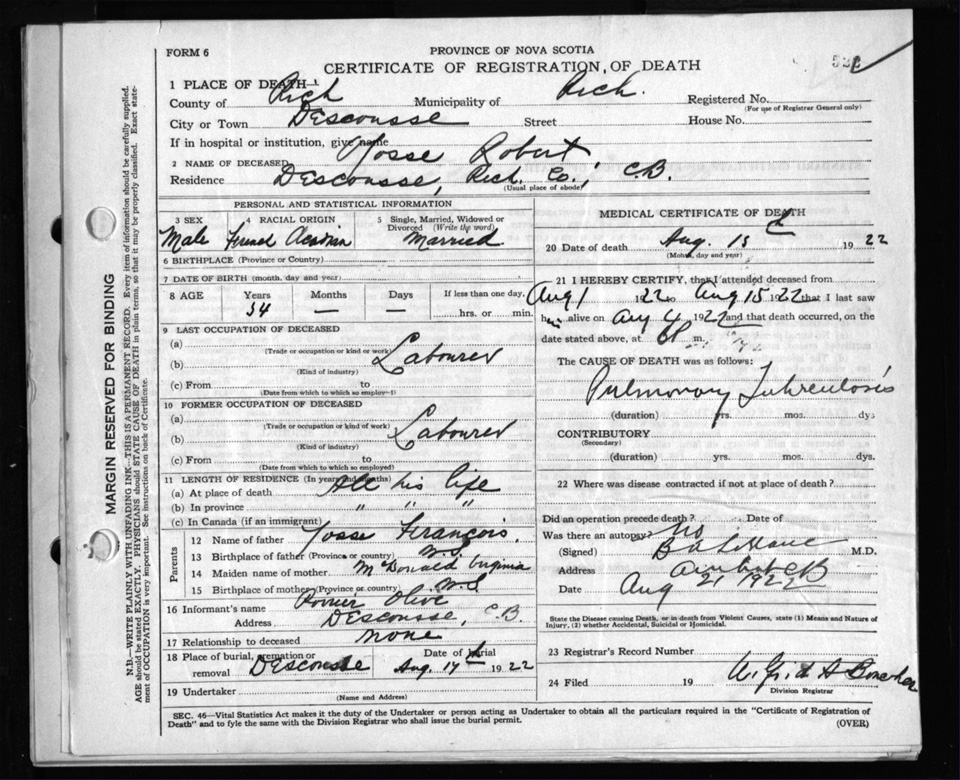 FORM 6
PROVINCE OF NOVA SCOTIA
CERTIFICATE OF REGISTRATION OF DEATH
1 PLACE OF DEATH—
County of Rich Municipality of Rich. Registered No.
(For use of Registrar General only)
City or Town DEscousse Street House No.
If in hospital or institution, give name
2 NAME OF DECEASED Yosse Robert,
Residence DEscousse, Rich. Co., C.B.
(Usual place of abode)
PERSONAL AND STATISTICAL INFORMATION
3 SEX 4 RACIAL ORIGIN 5 Single, Married, Widowed or Divorced (Write the word)
Male French Acadian Married
6 BIRTHPLACE (Province or Country)
7 DATE OF BIRTH (month, day and year)
8 AGE Years Months Days If less than one day,
34 — — hrs. or min.
9 LAST OCCUPATION OF DECEASED
(a)
(Trade or occupation or kind of work)
(b) Labourer
(Kind of industry)
(c) From to
10 FORMER OCCUPATION OF DECEASED
(a)
(Trade or occupation or kind of work)
(b) Labourer
(Kind of industry)
(c) From to
(Date from which to which so employed)
11 LENGTH OF RESIDENCE (In years and months)
(a) At place of death All his life
(b) In province " " "
(c) In Canada (if an immigrant)
Parents
12 Name of father Yosse François,
13 Birthplace of father (Province or country) N.S
14 Maiden name of mother McDonald Virginia
15 Birthplace of mother (Province or country) N.S
16 Informant's name Poirier Olive
Address DEscousse, C.B.
17 Relationship to deceased none
18 Place of burial, cremation or removal DEscousse Date of burial Aug. 17th 1922
19 Undertaker
(Name and Address)
MEDICAL CERTIFICATE OF DEATH
20 Date of death Aug. 15th 1922
(Month, day and year)
21 I HEREBY CERTIFY, that I attended deceased from
Aug 1 1922 to Aug 15 1922 that I last saw
him alive on Aug 4 1922 and that death occurred, on the
date stated above, at m.
The CAUSE OF DEATH was as follows:
Pulmonary Tuberculosis
(duration) yrs. mos. dys
CONTRIBUTORY
(Secondary)
(duration) yrs. mos. dys.
22 Where was disease contracted if not at place of death?
Did an operation precede death? Date of
Was there an autopsy? No
(Signed) M.D.
Address Arichat CB
Date Aug 21 1922
State the Disease causing Death, or in death from Violent Causes, state (1) Means and Nature of
Injury, (2) whether Accidental, Suicidal or Homicidal.
23 Registrar's Record Number
24 Filed 19
Division Registrar
SEC. 46—Vital Statistics Act makes it the duty of the Undertaker or person acting as Undertaker to obtain all the particulars required in the "Certificate of Registration of
Death" and to fyle the same with the Division Registrar who shall issue the burial permit. (OVER)
MARGIN RESERVED FOR BINDING
N.B.—WRITE PLAINLY WITH UNFADING INK—THIS IS A PERMANENT RECORD. Every item of information should be carefully supplied.
AGE should be stated EXACTLY. PHYSICIANS should STATE CAUSE OF DEATH in plain terms, so that it may be properly classified. Exact state-
ment of OCCUPATION is very important. See instructions on back of Certificate.